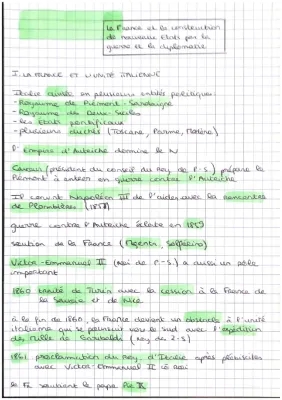 La France et la construction
de nouveaux Etats par la
guerre et la diplomatie
I. LA FRANCE ET L'UNITÉ ITALIENNE
Italie divisée en plusieurs entités politiques :
- Royaume de Piémont-Sardaigne
- Royaume des Deux-Siciles
- les Etats pontificaux
- plusieurs duchés (Toscane, Parme, Modène)
L'Empire d'Autriche domine le N
Cavour (président du conseil du Roy. de P-S) prépare le
Piémont à entrer en guerre contre l'Autriche
Il convint Napoléon III de l'aider avec la rencontre
de Plombières (1858)
guerre contre l'Autriche éclate en 1859
soutien de la France (Magenta, Solférino)
Victor-Emmanuel II (roi de P.-S.) a aussi un rôle
important
1860 traité de Turin avec la cession à la France de
la Savoie et de Nice
à la fin de 1860, la France devient un obstacle à l'unité
italienne qui se poursuit vers le sud avec l'expédition
des Mille de Garibaldi (roy de 2-S)
1861 proclamation du Roy. d'Italie après plébiscites
avec Victor-Emmanuel II le roi
la Fr soutient le pape Pie IX